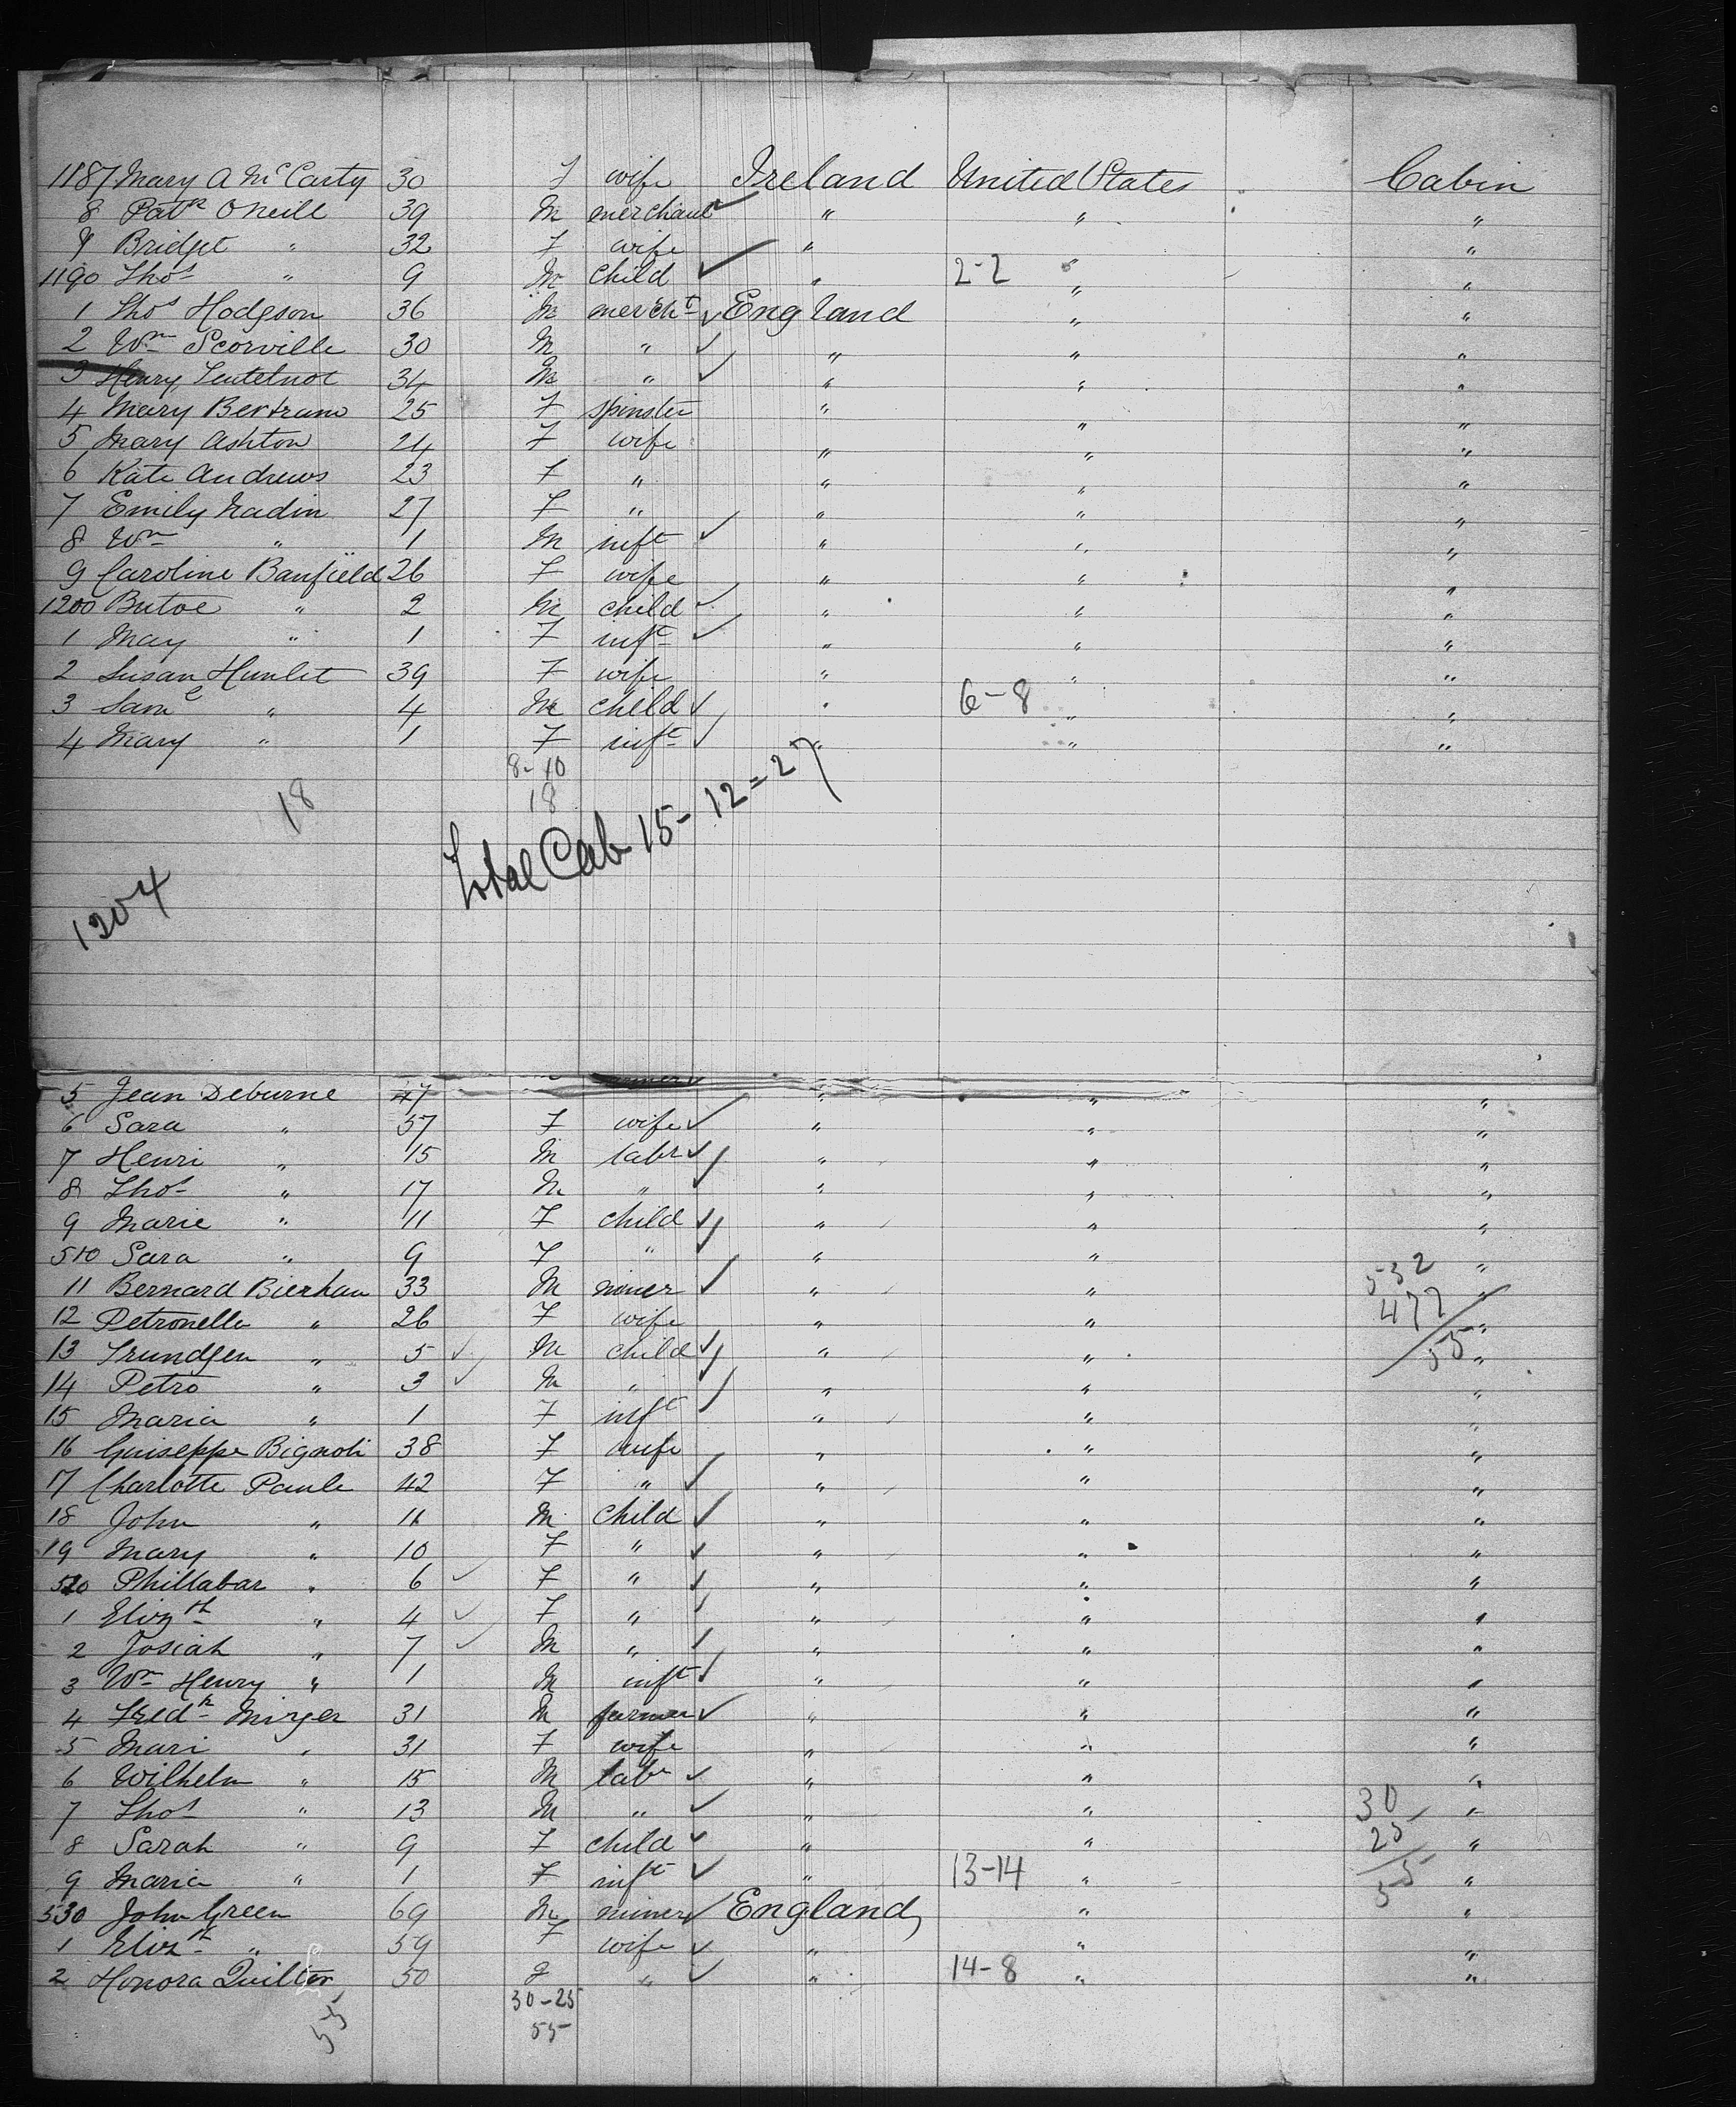 1187 Mary A McCarty 30 F wife Ireland United States Cabin
8 Patk ONeill 39 M merchant " " "
9 Bridget " 32 F wife " " "
1190 Thos " 9 M child " 2-2 " "
1 Thos Hodgson 36 M mercht England " "
2 Wm Scorville 30 M " " " "
3 Henry 34 M " " " "
4 Mary Bertram 25 F spinster " " "
5 Mary Ashton 24 F wife " " "
6 Kate Andrews 23 F " " " "
7 Emily Nadin 27 F " " " "
8 Wm " 1 M inft " " "
9 Caroline Banfield 26 F wife " " "
1200 Butoe " 2 M child " " "
1 May " 1 F inft " " "
2 Susan Humlet 39 F wife " " "
3 Saml " 4 M child " 6-8 " "
4 Mary " 1 F inft " " "
8-10
18 18
Total Cab 15-12=27
1204
5 Jean Deburne 47 " " "
6 Sara " 57 F wife " " "
7 Henri " 15 M labr " " "
8 Thos " 17 M " " " "
9 Marie " 11 F child " " "
510 Sara " 9 F " " " "
532
11 Bernard Bierhau 33 M miner " " "
477
12 Petronella " 26 F wife " " "
55
13 Trundgen " 5 M child " " "
14 Petro " 3 M " " " "
15 Maria " 1 F inft " " "
16 Guiseppe Bignoti 38 F wife " " "
17 Charlotte Paule 42 F " " " "
18 John " 11 M child " " "
19 Mary " 10 F " " " "
520 Phillabar " 6 F " " " "
1 Elizth " 4 F " " " "
2 Josiah " 7 M " " " "
3 Wm Henry " 1 M inft " " "
4 Fredk Mirger 31 M farmer " " "
5 Mari " 31 F wife " " "
6 Wilhelm " 15 M labr " " "
7 Thos " 13 M " " " 30 "
8 Sarah " 9 F child " " 25 "
9 Maria " 1 F inft " 13-14 " 55 "
530 John Green 69 M miner England " "
1 Elizth " 59 F wife " " "
2 Honora Quilter 50 F " " 14-8 " "
30-25
55 55